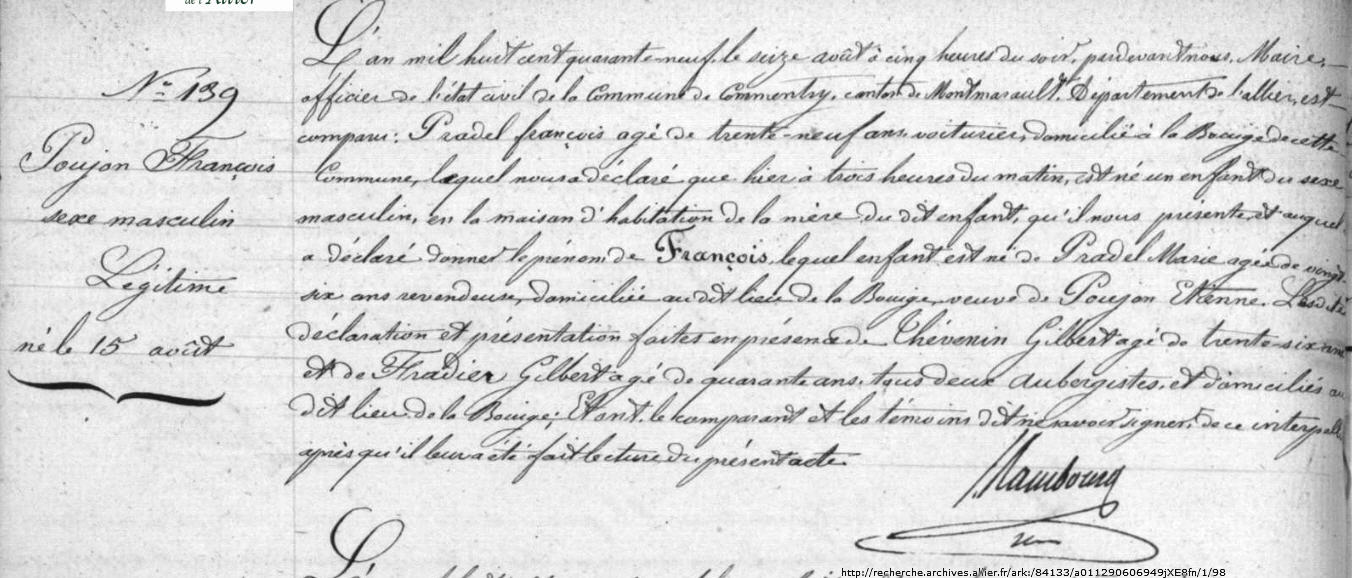 de l'Allier
N° 139
Poujon François
sexe masculin
Légitime
né le 15 août
L'an mil huit cent quarante-neuf, le seize août à cinq heures du soir, pardevant nous, Maire,
officier de l'état civil de la Commune de Commentry, canton de Montmarault, Département de l'allier, est
comparu: Pradel françois agé de trente-neuf ans voiturier, domicilié à la Bouige de cette
Commune, lequel nous a déclaré que hier à trois heures du matin, est né un enfant du sexe
masculin, en la maison d'habitation de la mère du dit enfant, qu'il nous présente, et auquel
a déclaré donner le prénom de François, lequel enfant est né de Pradel Marie agée de vingt
six ans revendeuse, domiciliée au dit lieu de la Bouige, veuve de Poujon Etienne. Les dites
déclaration et présentation faites en présence de Thévenin Gilbert agé de trente-six ans
et de Fradier Gilbert agé de quarante ans, tous deux aubergistes, et domiciliés au
dit lieu de la Bouige; Etant, le comparant et les témoins dit ne savoir signer, de ce interpellés
après qu'il leur a été fait lecture du présent acte.
Rambourg
L'
http://recherche.archives.allier.fr/ark:/84133/a011290606949jXE8fn/1/98